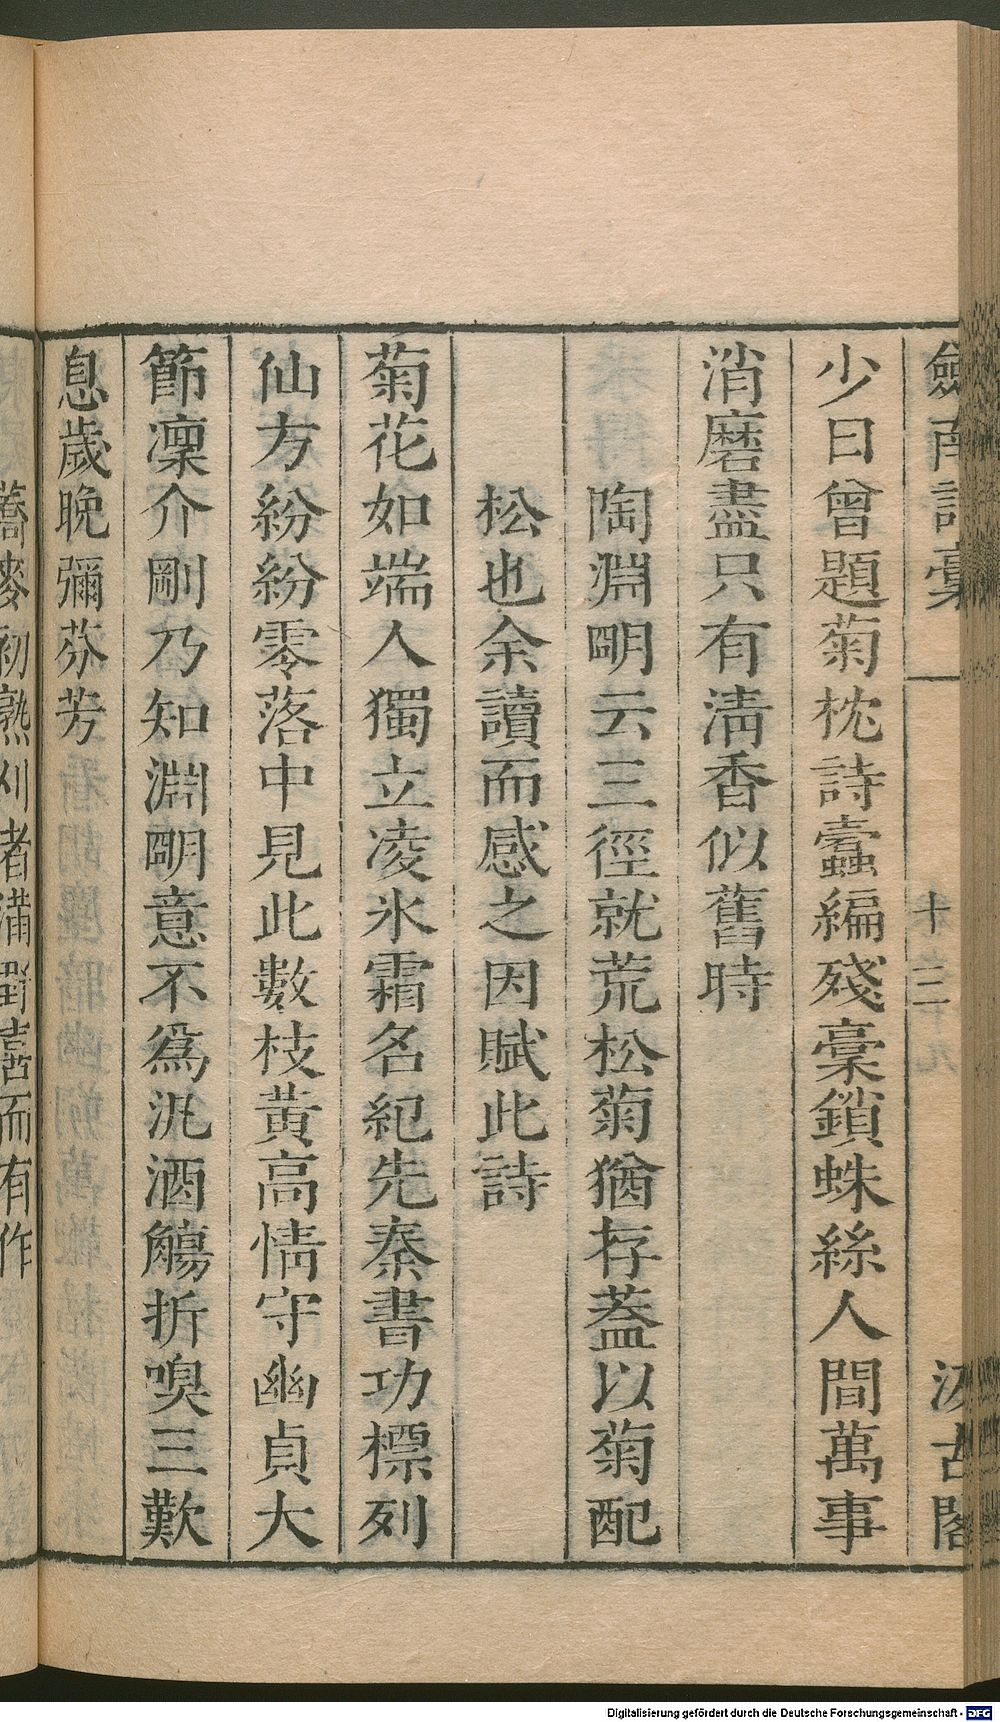 劒南詩稾
十二
汲古閣
少日曾題菊枕詩蠹編殘稾鎖蛛絲人間萬事
消磨盡只有淸香似舊時
陶淵明云三徑就荒松菊猶存葢以菊配
松也余讀而感之因賦此詩
菊花如端人獨立凌氷霜名紀先秦書功標列
仙方紛紛零落中見此數枝黃高情守幽貞大
節凜介剛乃知淵明意不爲汎酒觴折嗅三歎
息歲晩彌芬芳
蕎麥初熟刈者滿野喜而有作
Digitalisierung gefördert durch die Deutsche Forschungsgemeinschaft - DFG